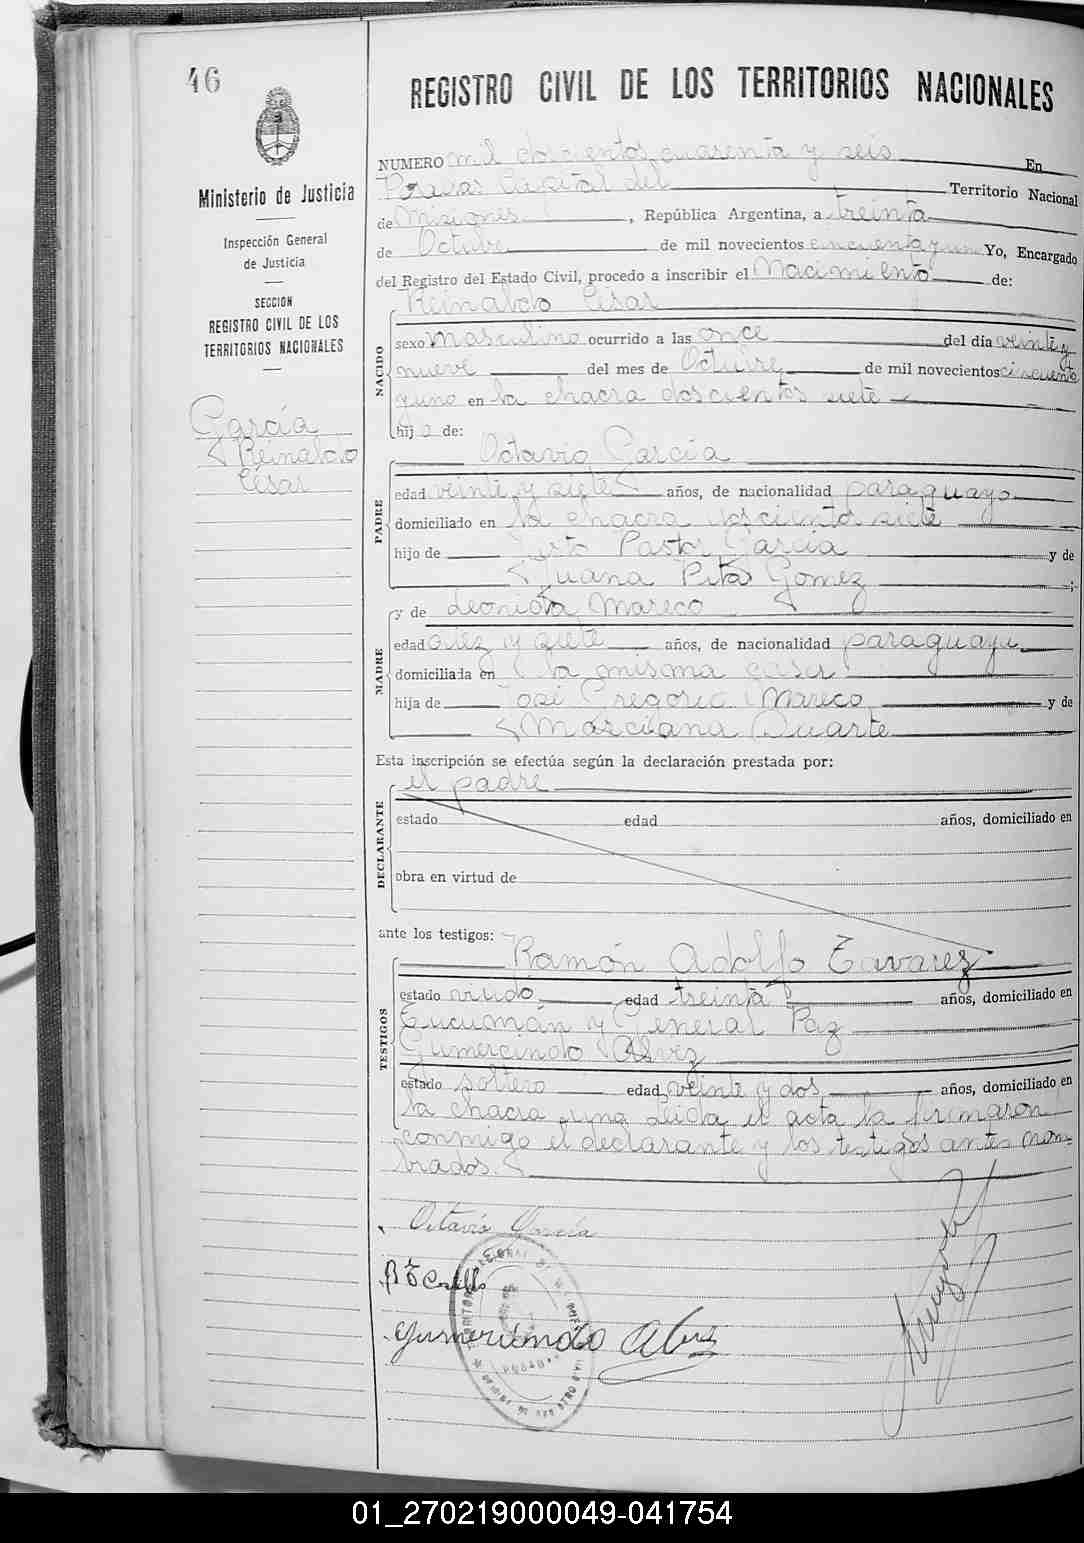 46
REGISTRO CIVIL DE LOS TERRITORIOS NACIONALES
Ministerio de Justicia
Inspección General
de Justicia
SECCIÓN
REGISTRO CIVIL DE LOS
TERRITORIOS NACIONALES
García
Reinaldo
César
NUMERO mil doscientos cuarenta y seis En
Posadas Capital del Territorio Nacional
de Misiones, República Argentina, a treinta
de Octubre de mil novecientos cincuenta y uno Yo, Encargado
del Registro del Estado Civil, procedo a inscribir el Nacimiento de:
NACIDO
Reinaldo César
sexo masculino ocurrido a las once del día veinte y
nueve del mes de Octubre de mil novecientos cincuenta
y uno en la chacra doscientos siete
hijo de:
PADRE
Octavio García
edad veinte y siete años, de nacionalidad paraguayo
domiciliado en la chacra doscientos siete
hijo de Justo Pastor García y de
Juana Gomez ;
MADRE
y de Leonida Mareco
edad diez y siete años, de nacionalidad paraguaya
domiciliada en la misma casa
hija de José Gregorio Mareco y de
Marciana Duarte
Esta inscripción se efectúa según la declaración prestada por:
DECLARANTE
el padre
estado edad años, domiciliado en
obra en virtud de
ante los testigos:
TESTIGOS
Ramón Adolfo Tavarez
estado viudo edad treinta años, domiciliado en
Tucumán y General Paz
Gumercindo Alvez
estado soltero edad veinte y dos años, domiciliado en
la chacra uno leida el acta la firmaron
conmigo el declarante y los testigos antes nom-
brados.
Octavio García
Gumercindo Alvez
01_270219000049-041754